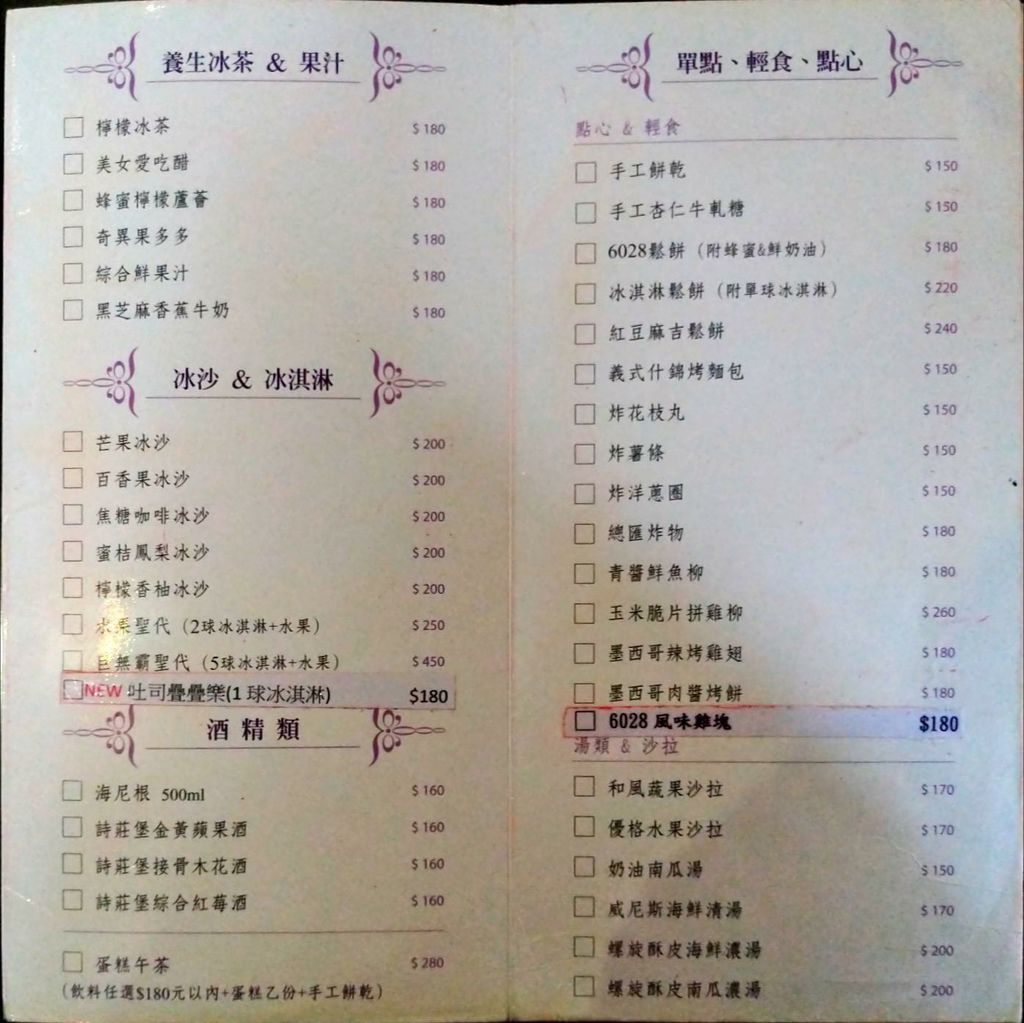 養生冰茶 & 果汁
檸檬冰茶 $180
美女愛吃醋 $180
蜂蜜檸檬蘆薈 $180
奇異果多多 $180
綜合鮮果汁 $180
黑芝麻香蕉牛奶 $180
冰沙 & 冰淇淋
芒果冰沙 $200
百香果冰沙 $200
焦糖咖啡冰沙 $200
蜜桔鳳梨冰沙 $200
檸檬香柚冰沙 $200
水果聖代（2球冰淇淋+水果） $250
巨無霸聖代（5球冰淇淋+水果） $450
NEW 吐司疊疊樂(1 球冰淇淋) $180
酒精類
海尼根 500ml $160
詩莊堡金黃蘋果酒 $160
詩莊堡接骨木花酒 $160
詩莊堡綜合紅莓酒 $160
蛋糕午茶 $280
（飲料任選$180元以內+蛋糕乙份+手工餅乾）
單點、輕食、點心
點心 & 輕食
手工餅乾 $150
手工杏仁牛軋糖 $150
6028鬆餅（附蜂蜜&鮮奶油） $180
冰淇淋鬆餅（附單球冰淇淋） $220
紅豆麻吉鬆餅 $240
義式什錦烤麵包 $150
炸花枝丸 $150
炸薯條 $150
炸洋蔥圈 $150
總匯炸物 $180
青醬鮮魚柳 $180
玉米脆片拼雞柳 $260
墨西哥辣烤雞翅 $180
墨西哥肉醬烤餅 $180
6028 風味雞塊 $180
湯類 & 沙拉
和風蔬果沙拉 $170
優格水果沙拉 $170
奶油南瓜湯 $150
威尼斯海鮮清湯 $170
螺旋酥皮海鮮濃湯 $200
螺旋酥皮南瓜濃湯 $200